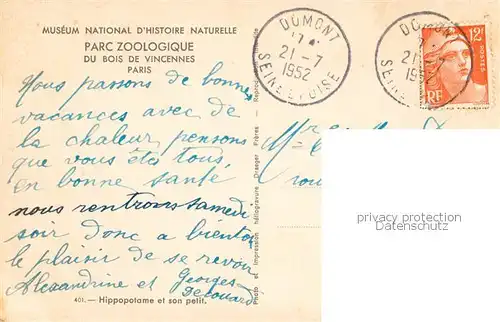 MUSÉUM NATIONAL D'HISTOIRE NATURELLE
PARC ZOOLOGIQUE
DU BOIS DE VINCENNES
PARIS
Nous passons de bonnes
vacances avec de
la chaleur, pensons
que vous êtes tous,
en bonne santé
nous rentrons samedi
soir donc a bientot
le plaisir de se revoir
Alexandrine et Georges
401. — Hippopotame et son petit.
Photo et Impression héliogravure Draeger Frères - Reproduction
DOMONT
21-7
1952
SEINE ET OISE
DOMONT
21-7
1952
SEINE
12F
POSTES
RF
privacy protection
Datenschutz